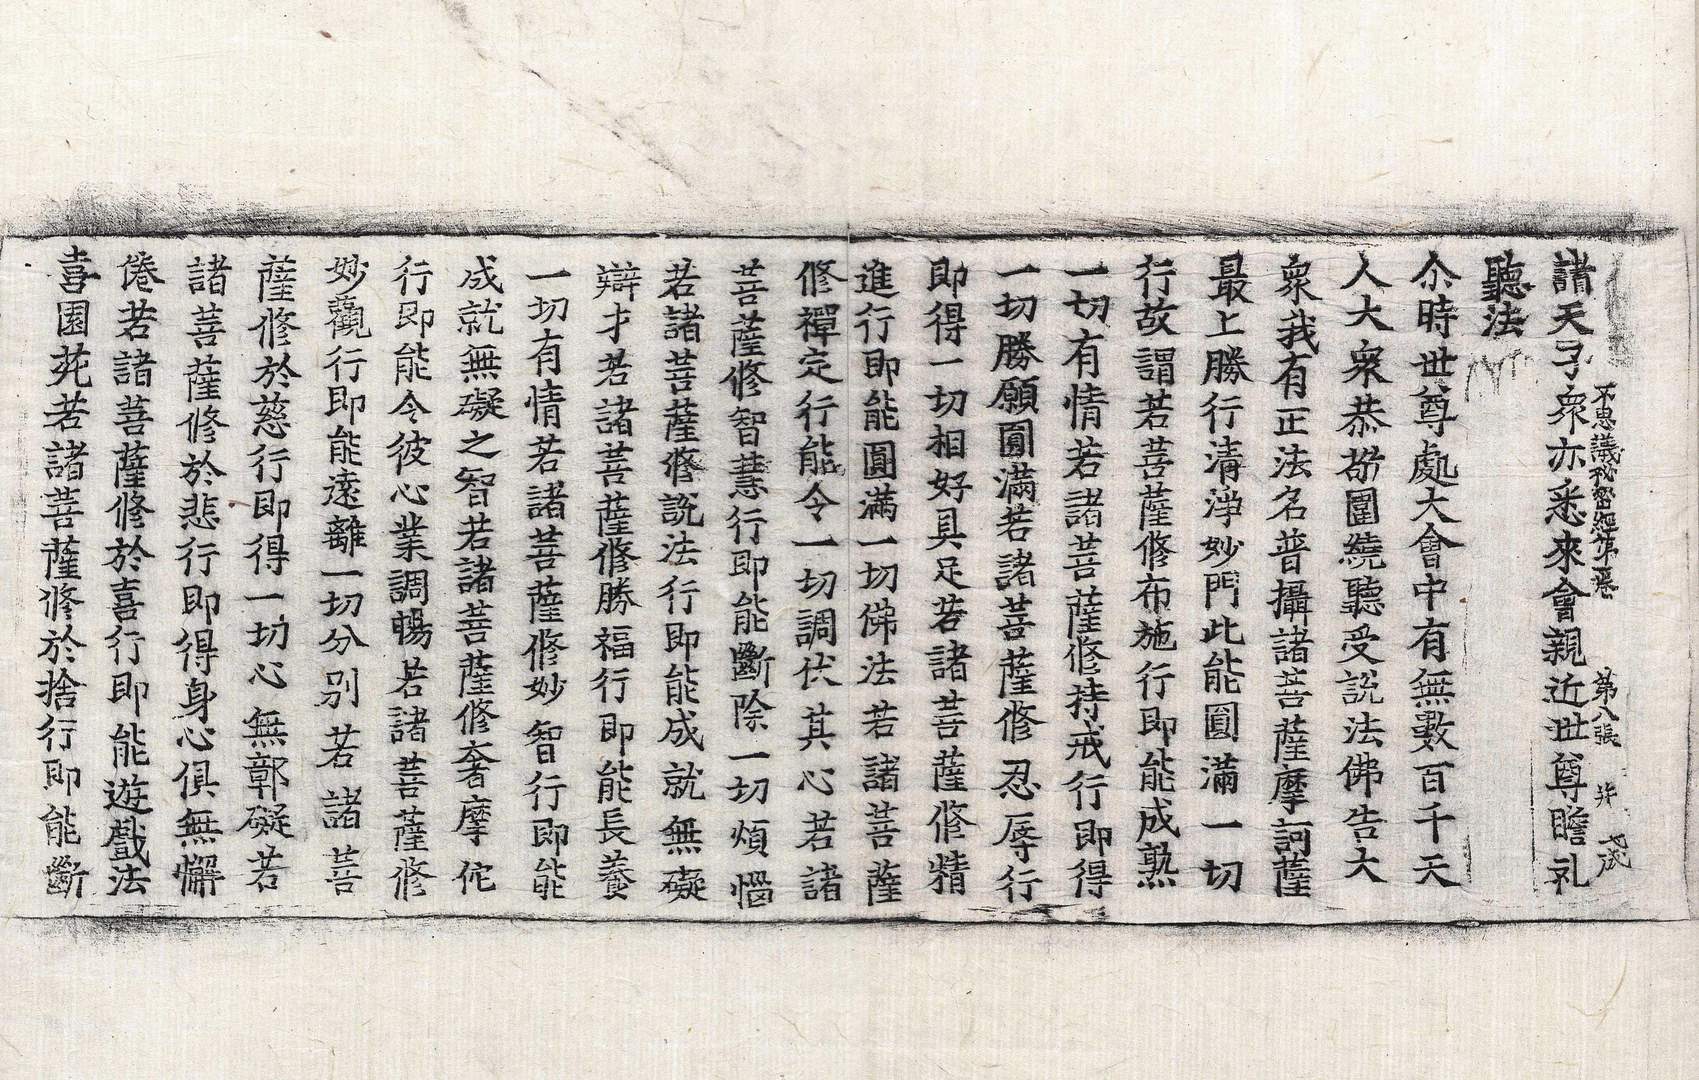 諸天子衆亦悉來會親近世尊瞻礼
不思議秘密經第卷 第八張 毕 戊
聽法
尒時世尊處大會中有無數百千天
人大衆恭敬圍繞聽受說法佛告大
衆我有正法名普攝諸菩薩摩訶薩
最上勝行清淨妙門此能圓滿一切
行故謂若菩薩修布施行即能成熟
一切有情若諸菩薩修持戒行即得
一切勝願圓滿若諸菩薩修忍辱行
即得一切相好具足若諸菩薩修精
進行即能圓滿一切佛法若諸菩薩
修禪定行能令一切調伏其心若諸
菩薩修智慧行即能斷除一切煩惱
若諸菩薩修說法行即能成就無礙
辯才若諸菩薩修勝福行即能長養
一切有情若諸菩薩修妙智行即能
成就無礙之智若諸菩薩修奢摩佗
行即能令彼心業調暢若諸菩薩修
妙觀行即能遠離一切分別若諸菩
薩修於慈行即得一切心無鄣礙若
諸菩薩修於悲行即得身心俱無懈
倦若諸菩薩修於喜行即能遊戲法
喜園苑若諸菩薩修於捨行即能斷